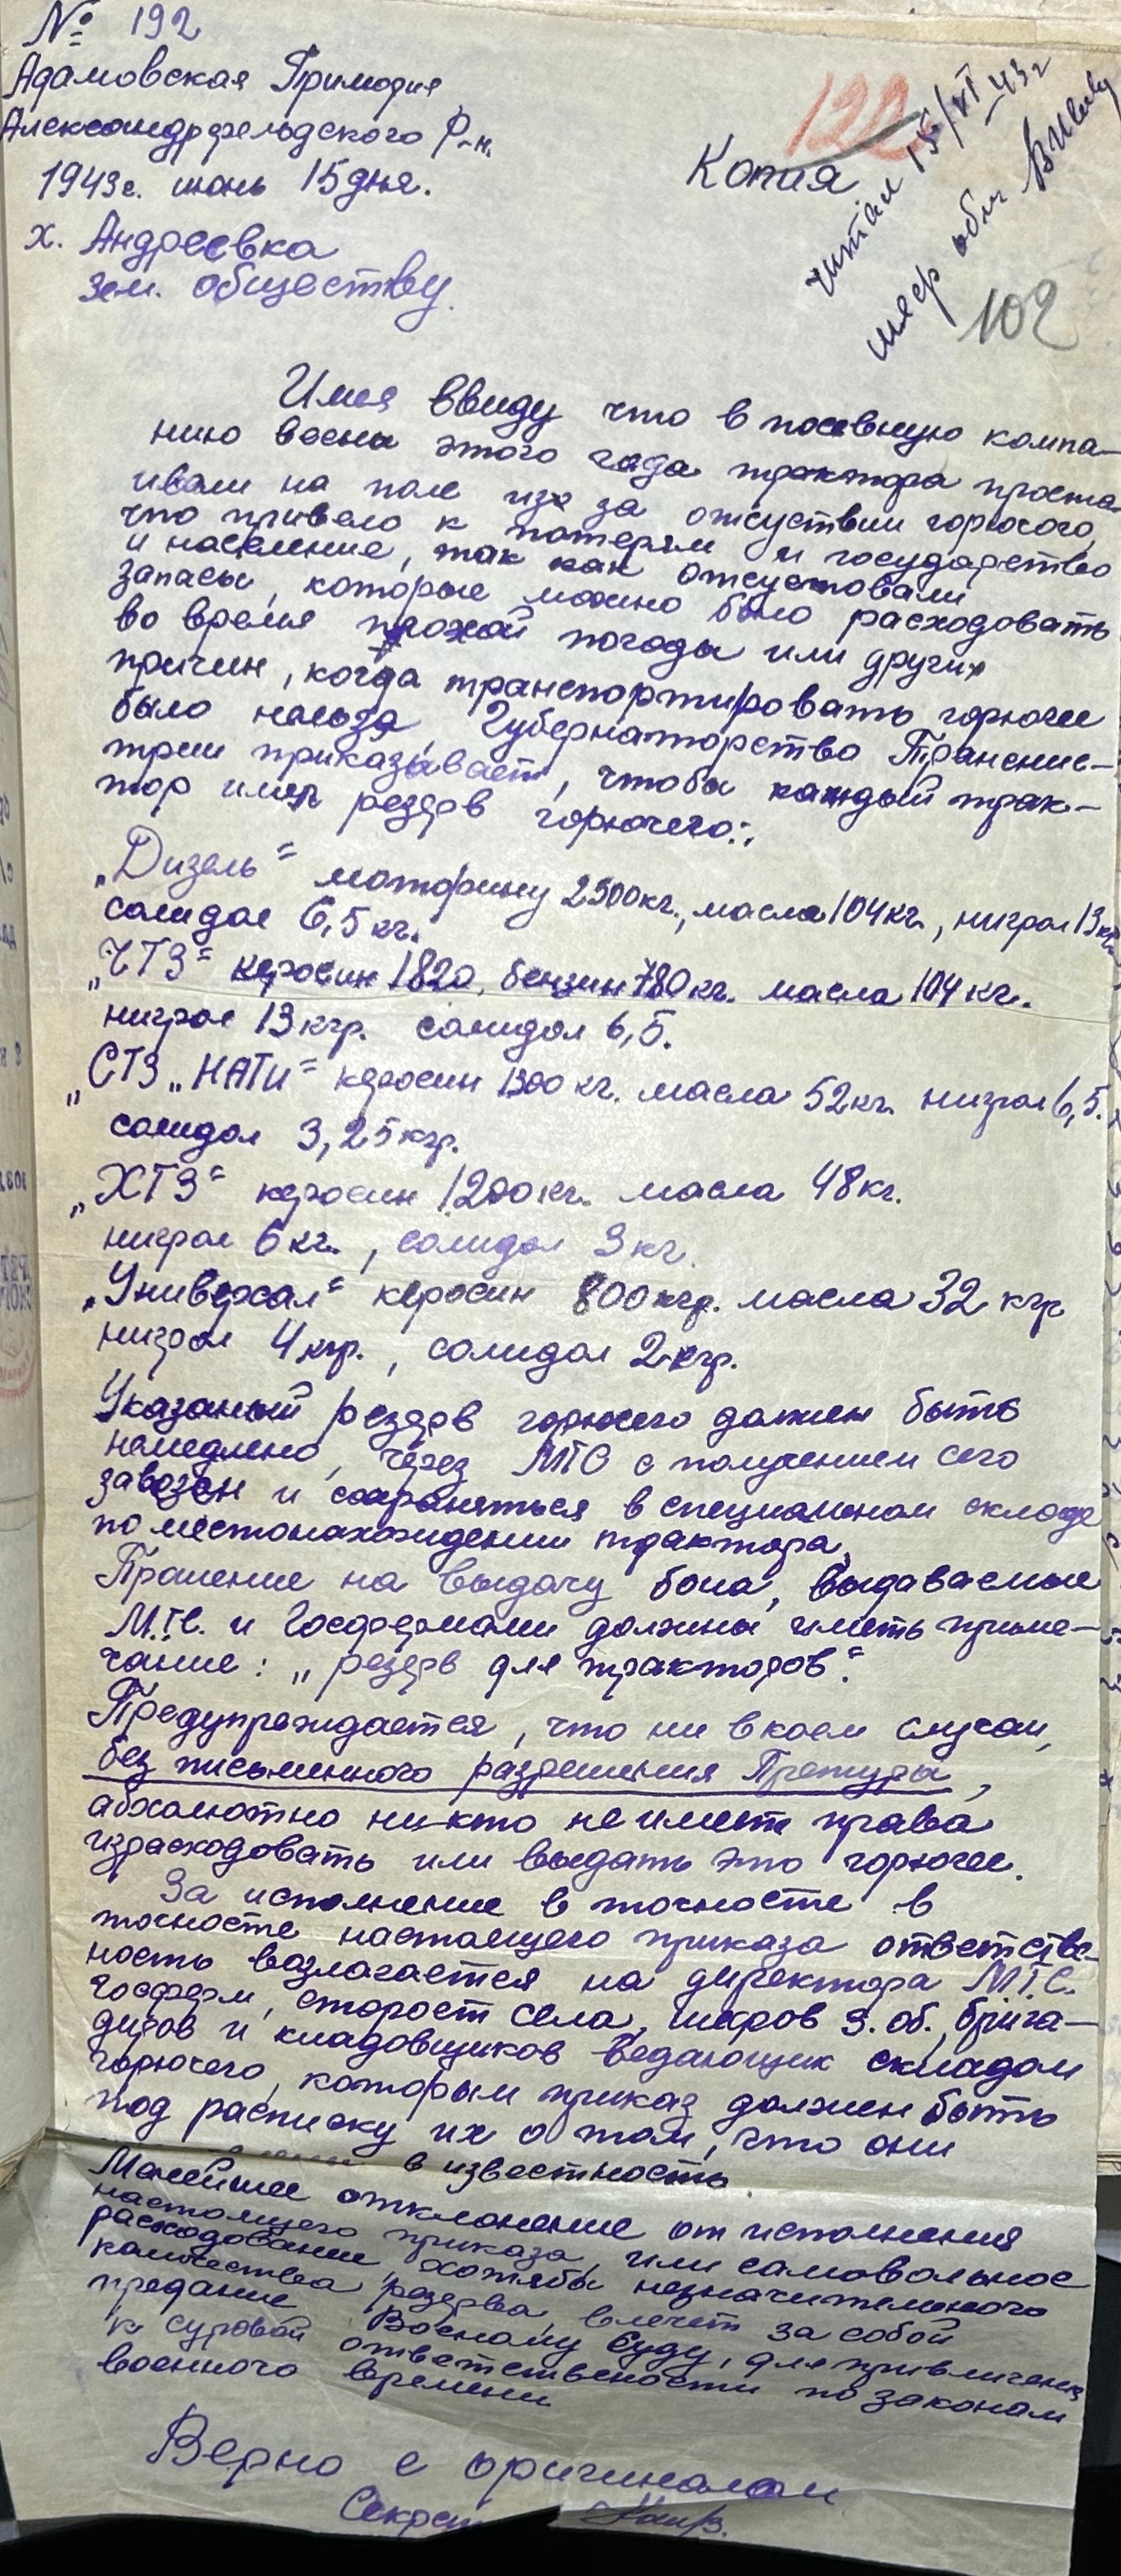 № 192
Адамовская Примария
Александрфельдского р-н.
1943г. июнь 15 дня.
х. Андреевка
зем. обществу.
122
Копия
читал 15/VI 43г
шеф общ
102
Имея ввиду что в посевную компа-
нию весны этого года трактора проста-
ивали на поле изо за отсуствии горючого,
что привело к потерям и государство
и население, так как отсуствовали
запасы, которые можно было расходовать
во время плохой погоды или других
причин, когда транспортировать горючее
было нельзя, Губернаторство Транснис-
трии приказывает, чтобы каждый трак-
тор имел резерв горючего:,
„Дизель" моторину 2500кг., масла 104кг., нигрол 13кг.
солидол 6,5 кг.
„ЧТЗ" керосин 1820, бензин 780кг. масла 104 кг.
нигрол 13 кгр. солидол 6,5.
„СТЗ „НАТИ" керосин 1300 кг. масла 52кг. нигрол 6,5.
солидол 3,25 кгр.
„ХТЗ" керосин 1200 кг. масла 48кг.
нигрол 6 кг., солидол 3 кг.
„Универсал" керосин 800 кгр. масла 32 кгр
нигрол 4 кгр., солидол 2 кгр.
Указаный резерв горючего должен быть
немедлено, через МТС с получением сего
завезен и сохраняться в специалном складе
по местонахождении трактора.
Прошение на выдачу бона, выдаваемые
М.Т.С. и Госфермами должны иметь приме-
чание: „резерв для тракторов".
Предупреждается, что ни в коем случаи,
без письменного разрешения Претуры,
абсолютно никто не имеет права
израсходовать или выдать это горючее.
За исполнение в точности в
точносте настоящего приказа ответстве-
ность возлагается на директора М.Т.С.
Госферм, старост села, шефов З.об., брига-
диров и кладовщиков ведающих складом
горючего, которым приказ должен быть
под расписку их о том, что они
в известность
Малейшее отклонение от исполнения
настоящего приказа, или самовольное
расходование хотябы незначительного
количества резерва, влечет за собой
предание Военому Суду, для привличения
к суровой ответствености по законам
военного времени
Верно с оригиналом
Секрет